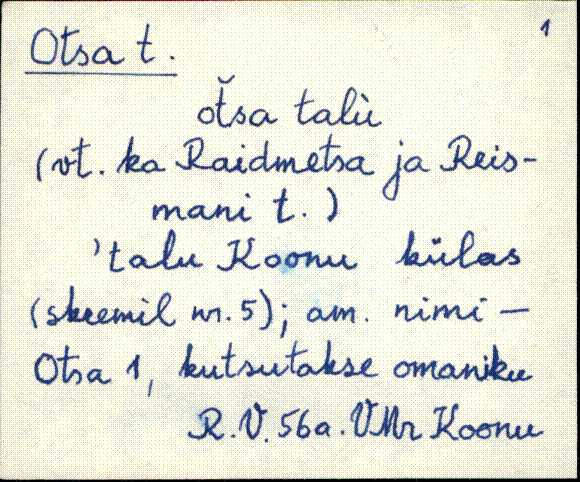 1
Otsa t.
otšа talù
(vt. ka Raidmetsa ja Reis-
mani t.)
'talu Koonu külas
(skeemil nr. 5); am. nimi —
Otsa 1, kutsutakse omaniku
R.V. 56a. VMr Koonu